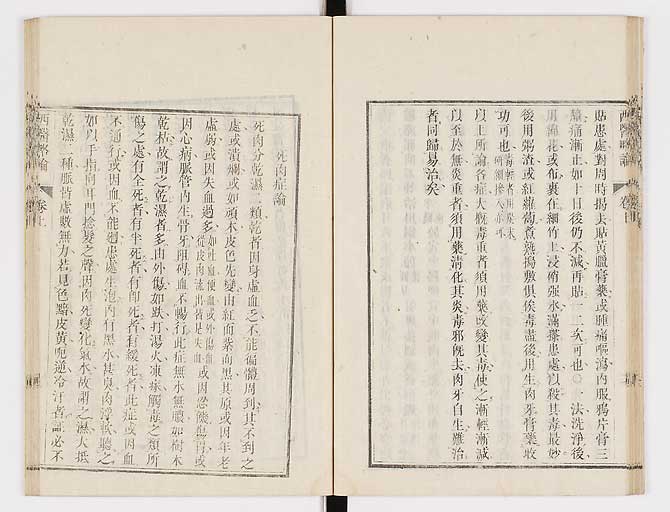 貼患處對周時揭去貼黃臘膏藥或腫痛嘔瀉內服鴉片膏三
膿痛漸止如十日後仍不減再貼一二矣可也○一法洗淨後
用棉花或布裹在細竹上浸硝强水滿搽患處以殺其毒最妙
後用粥渣或紅蘿蔔煮熟搗敷俱俟毒盡後用生肉牙膏藥收
功可也
以上所論各症大概毒重者須用藥改變其毒使之漸輕漸減
以至於無炎重者須用藥淸化其炎毒邪旣去肉牙自生難治
者同歸易治矣
西醫略論
卷上
死肉症論
死肉分乾濕二類乾者因身虛血之不能徧體周到其不到之
處或潰爛或如頑木皮色先變由紅而紫而黑其原或因年老
虛弱或因失血過多或因慾傷腎或
因心病脈管內生骨牙阻碍血不暢行此症無水無膿如樹木
乾枯故謂之乾濕者多由外傷如跌打湯火凍瘃觸毒之類所
傷之處有全死者有半死者有卽死者有緩死者此症或因血
不通行或因血不能廻患處生泡內有黑水甚臭肉浮軟聽之
如以手指向耳門捻髮之聲因肉死變化氣水故謂之濕大抵
乾濕二種脈皆虛數無力若見色黯皮黃呃逆冷汗者證必不
西醫略論
卷上